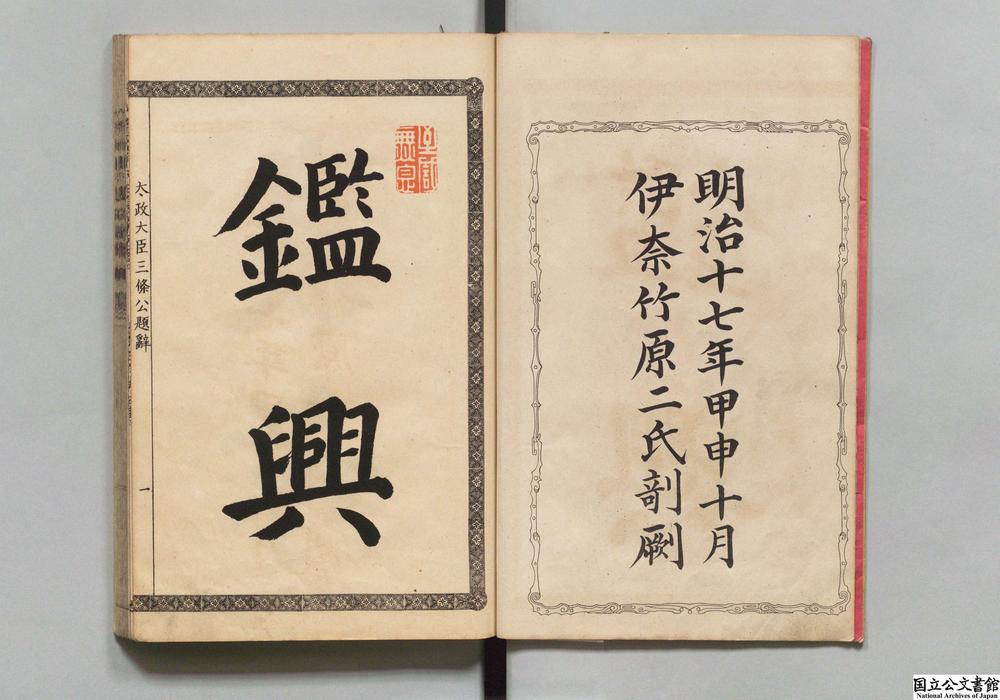 明治十七年甲申十月
伊奈竹原二氏剞劂
鑑
興
太政大臣三條公題辭
一
国立公文書館
National Archives of Japan